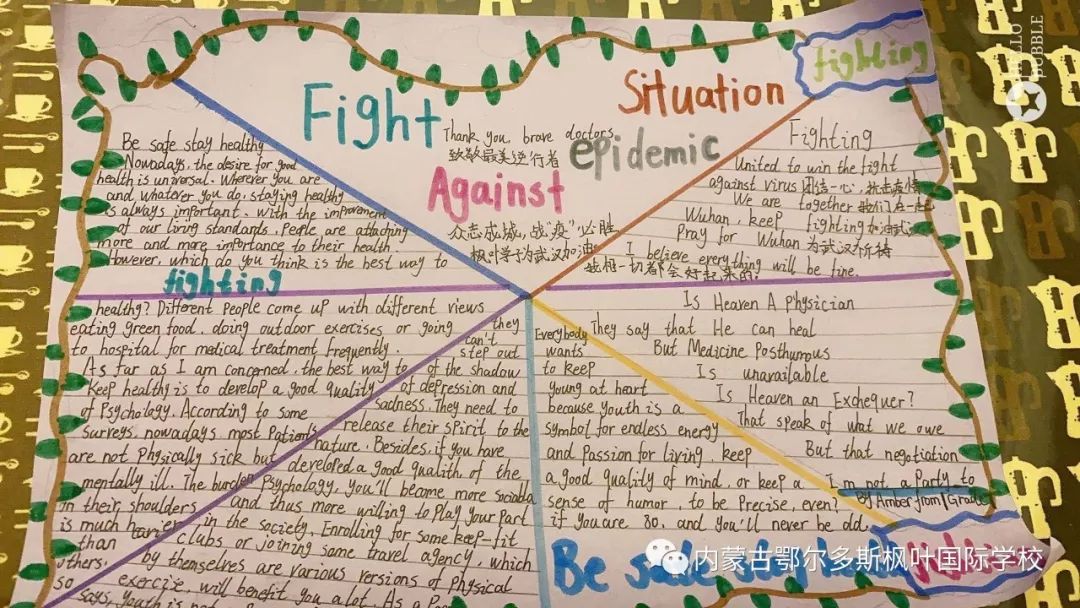 HELLO
BUBBLE
fighting
Fight
Situation
Thank you, brave doctors
致敬最美逆行者
epidemic
Against
众志成城,战"疫"必胜
枫叶学子为武汉加油
Be safe stay healthy
Nowadays, the desire for good
health is universal. Wherever you are
and whatever you do, staying healthy
is always important. With the improvement
of our living standards, People are attaching
more and more importance to their health.
However, which do you think is the best way to
fighting
healthy? Different People come up with different views
eating green food, doing outdoor exercises or going
to hospital for medical treatment frequently.
As far as I am concerned, the best way to
keep healthy is to develop a good quality
of Psychology. According to some
surveys, nowadays most Patients
are not physically sick but
mentally ill. The burden
on their shoulders
is much heavier
than
others,
so
they
can't
step out
of the shadow
of depression and
sadness. They need to
release their spirit to the
nature. Besides, if you have
developed a good qualith of the
Psychology, you'll become more
and thus more willing to Play your Part
in the society. Enrolling for some keep-fit
clubs or joining some travel agency, which
by themselves are various versions of Physical
exercise, will benefit you a lot. As a
says, Youth is not
Everybody
wants
to keep
young at heart
because youth is a
symbol for endless energy
and Passion for living. keep
a good quality of mind, or keep a
sense of humor, to be Precise, even
if you are 80, and you'll never be old.
Fighting
United to win the fight
against virus 团结一心,抗击疫情
We are together 我们在一起
Wuhan, keep fighting 加油武汉
Pray for Wuhan 为武汉祈祷
I believe everything will be fine.
我相信一切都会好起来的!
Is Heaven A Physician
They say that He can heal
But Medicine Posthumous
Is unavailable
Is Heaven an Exchequer?
That speak of what we owe
But that negotiation
I'm not a Party to
By Amber from Grade
Be safe stay
内蒙古鄂尔多斯枫叶国际学校